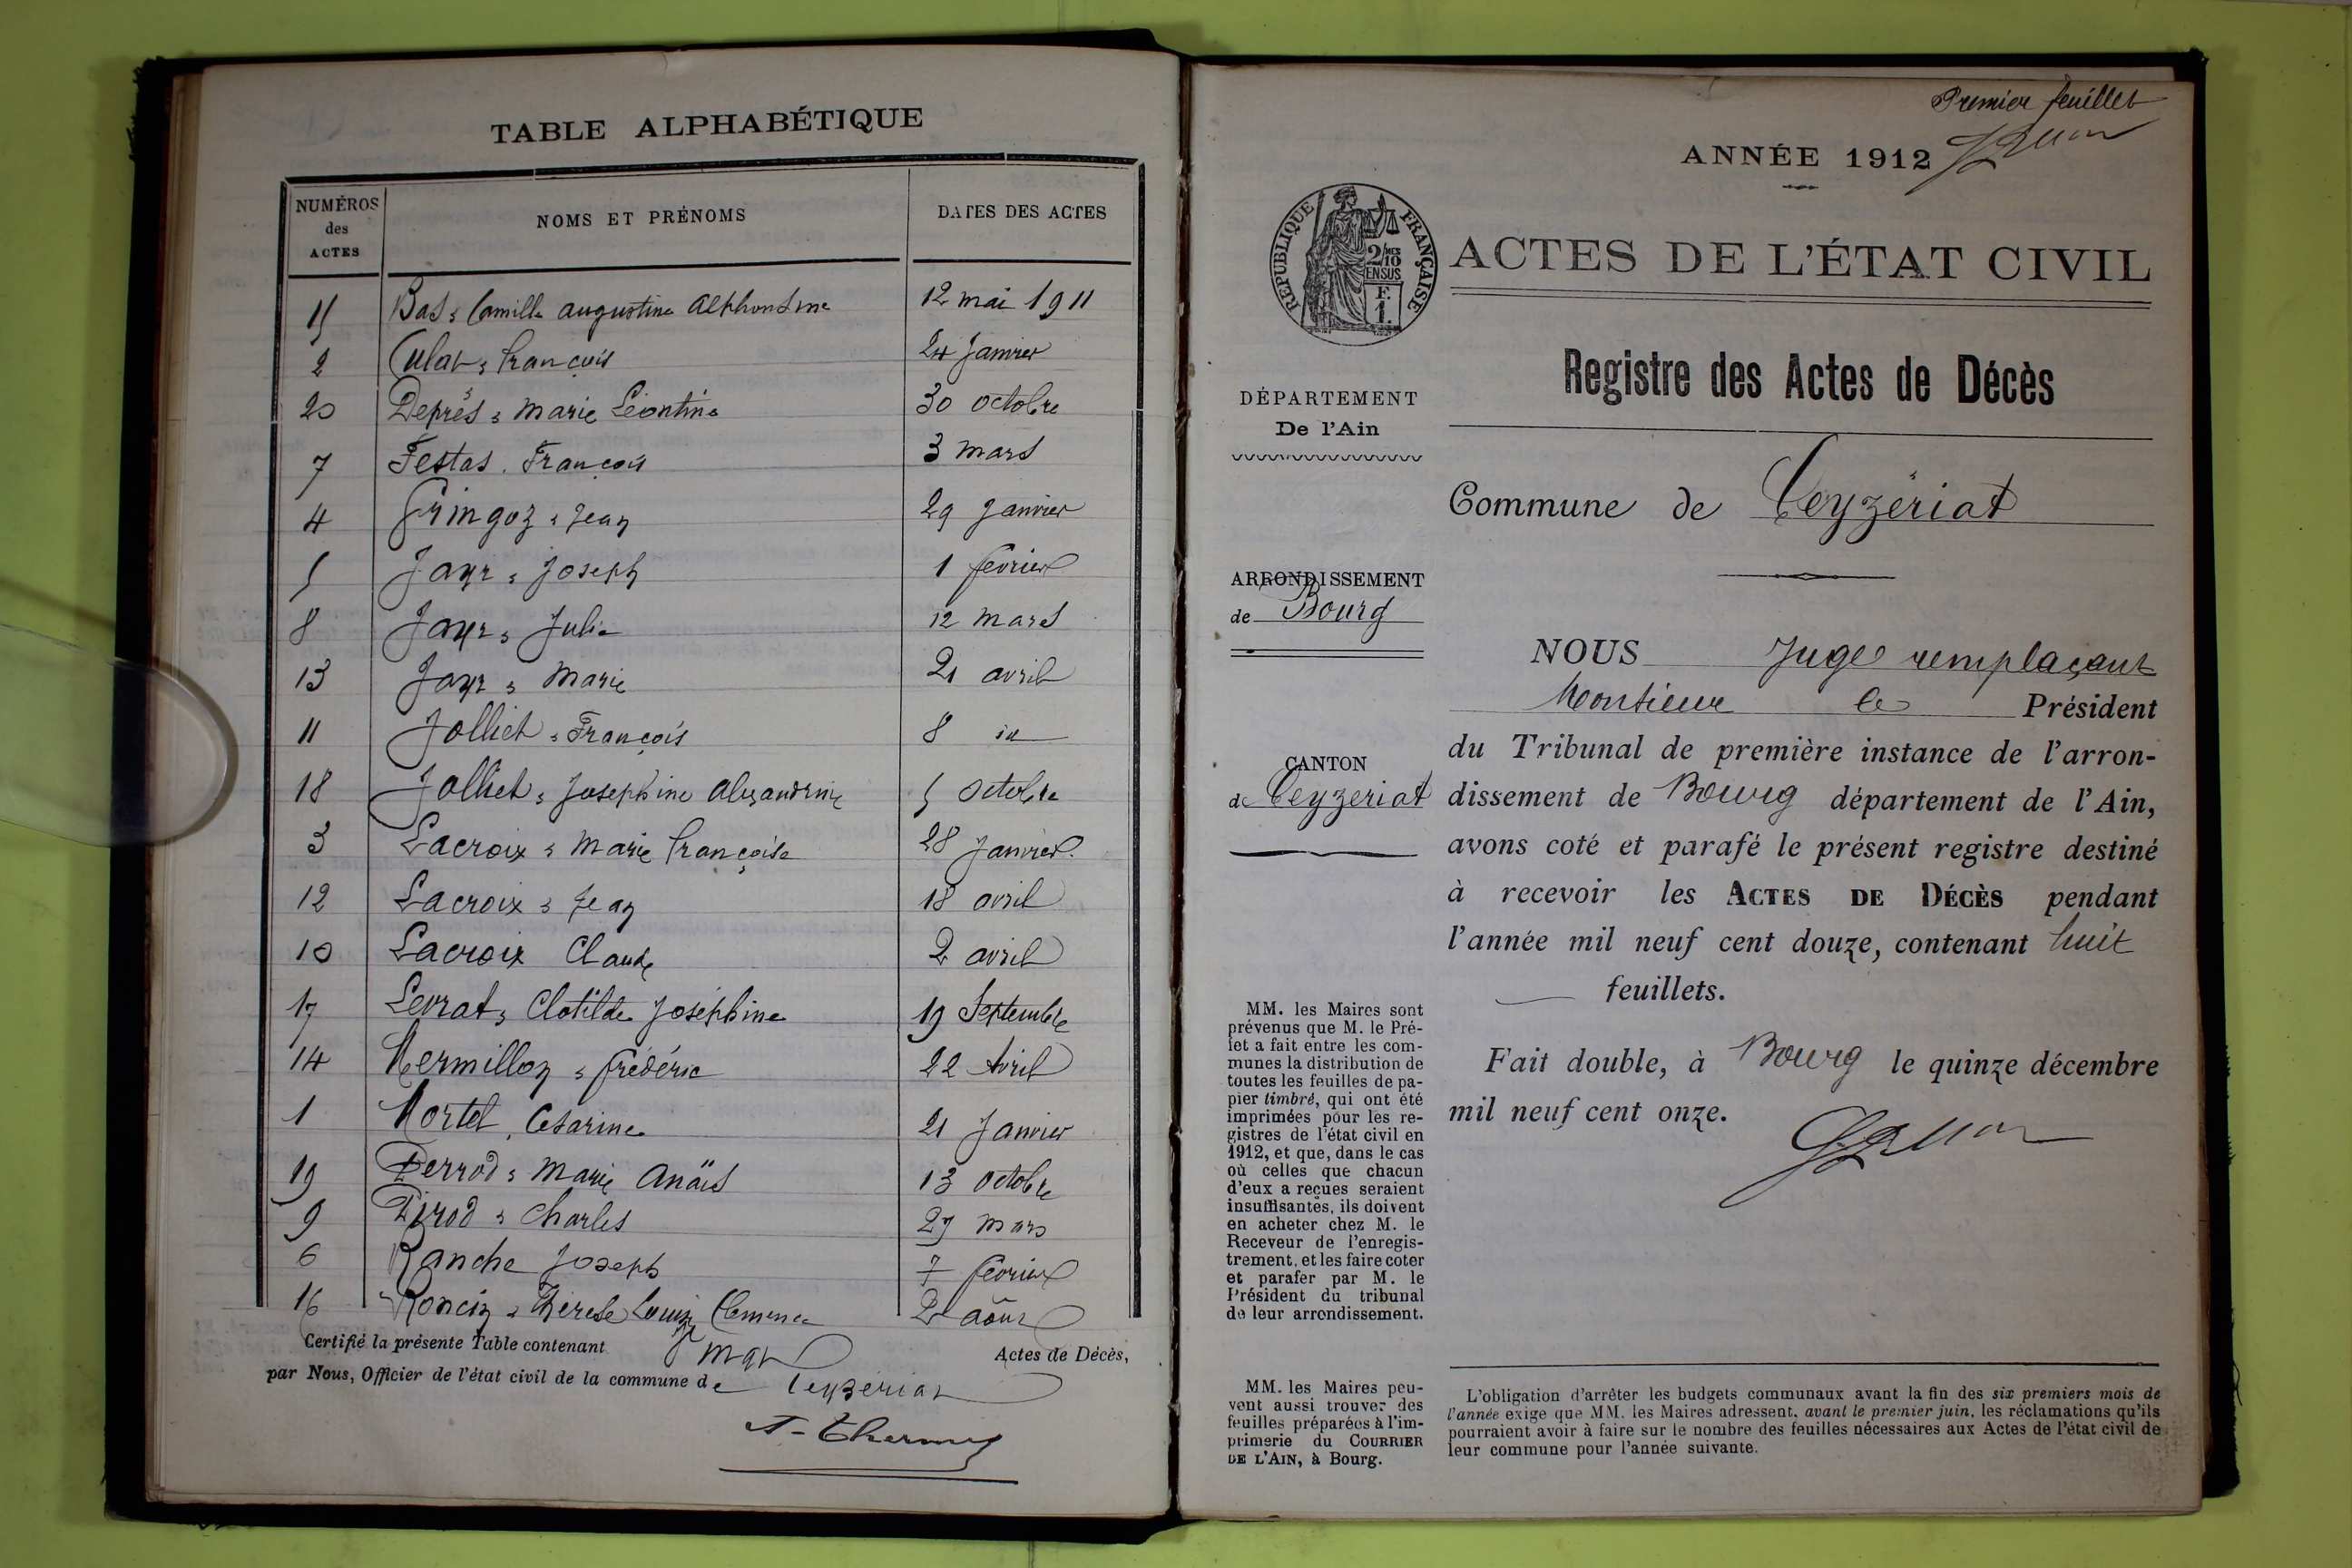 TABLE ALPHABÉTIQUE
NUMÉROS des ACTES NOMS ET PRÉNOMS DATES DES ACTES
15 Bas, Camille Augustine Alphonsine 12 mai 1911
2 Culat, François 24 Janvier
20 Deprés, Marie Léontine 30 octobre
7 Festas, François 3 mars
4 Gringoz, Jean 29 Janvier
5 Jayr, Joseph 1 février
8 Jayr, Julie 12 mars
13 Jayr, Marie 21 avril
11 Jolliet, François 8 id
18 Jolliet, Joséphine Alexandrine 5 octobre
3 Lacroix, Marie Françoise 28 Janvier
12 Lacroix, Jean 18 avril
10 Lacroix Claude 2 avril
17 Levrat, Clotilde Joséphine 19 Septembre
14 Mermillon, Frédéric 22 Avril
1 Mortel, Césarine 21 Janvier
19 Perrod, Marie Anaïs 13 octobre
9 Pirod, Charles 27 mars
6 Ranche Joseph 7 février
16 Roncin, Thérèse Louise Clémence 2 août
Certifié la présente Table contenant Actes de Décès,
par Nous, Officier de l'état civil de la commune de Ceyzériat
Premier feuillet
ANNÉE 1912
RÉPUBLIQUE FRANÇAISE
2/10 EN SUS
F. 1.
ACTES DE L'ÉTAT CIVIL
Registre des Actes de Décès
DÉPARTEMENT
De l'Ain
Commune de Ceyzériat
ARRONDISSEMENT
de Bourg
CANTON
de Ceyzeriat
NOUS Juge remplaçant
Monsieur le Président
du Tribunal de première instance de l'arron-
dissement de Bourg département de l'Ain,
avons coté et parafé le présent registre destiné
à recevoir les ACTES DE DÉCÈS pendant
l'année mil neuf cent douze, contenant huit
feuillets.
Fait double, à Bourg le quinze décembre
mil neuf cent onze.
MM. les Maires sont
prévenus que M. le Pré-
fet a fait entre les com-
munes la distribution de
toutes les feuilles de pa-
pier timbré, qui ont été
imprimées pour les re-
gistres de l'état civil en
1912, et que, dans le cas
où celles que chacun
d'eux a reçues seraient
insuffisantes, ils doivent
en acheter chez M. le
Receveur de l'enregis-
trement, et les faire coter
et parafer par M. le
Président du tribunal
de leur arrondissement.
MM. les Maires peu-
vent aussi trouver des
feuilles préparées à l'im-
primerie du COURRIER
DE L'AIN, à Bourg.
L'obligation d'arrêter les budgets communaux avant la fin des six premiers mois de
l'année exige que MM. les Maires adressent, avant le premier juin, les réclamations qu'ils
pourraient avoir à faire sur le nombre des feuilles nécessaires aux Actes de l'état civil de
leur commune pour l'année suivante.